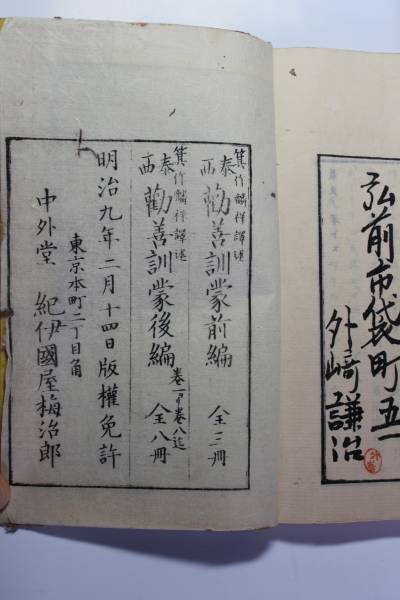 弘前市袋町五一
外﨑謙治
箕作麟祥譯述
泰西 勸善訓蒙前編 全三冊
箕作麟祥譯述
泰西 勸善訓蒙後編 巻一ヨリ巻八迄 全八冊
明治九年二月十四日版權免許
東京本町二丁目角
中外堂 紀伊國屋梅治郎